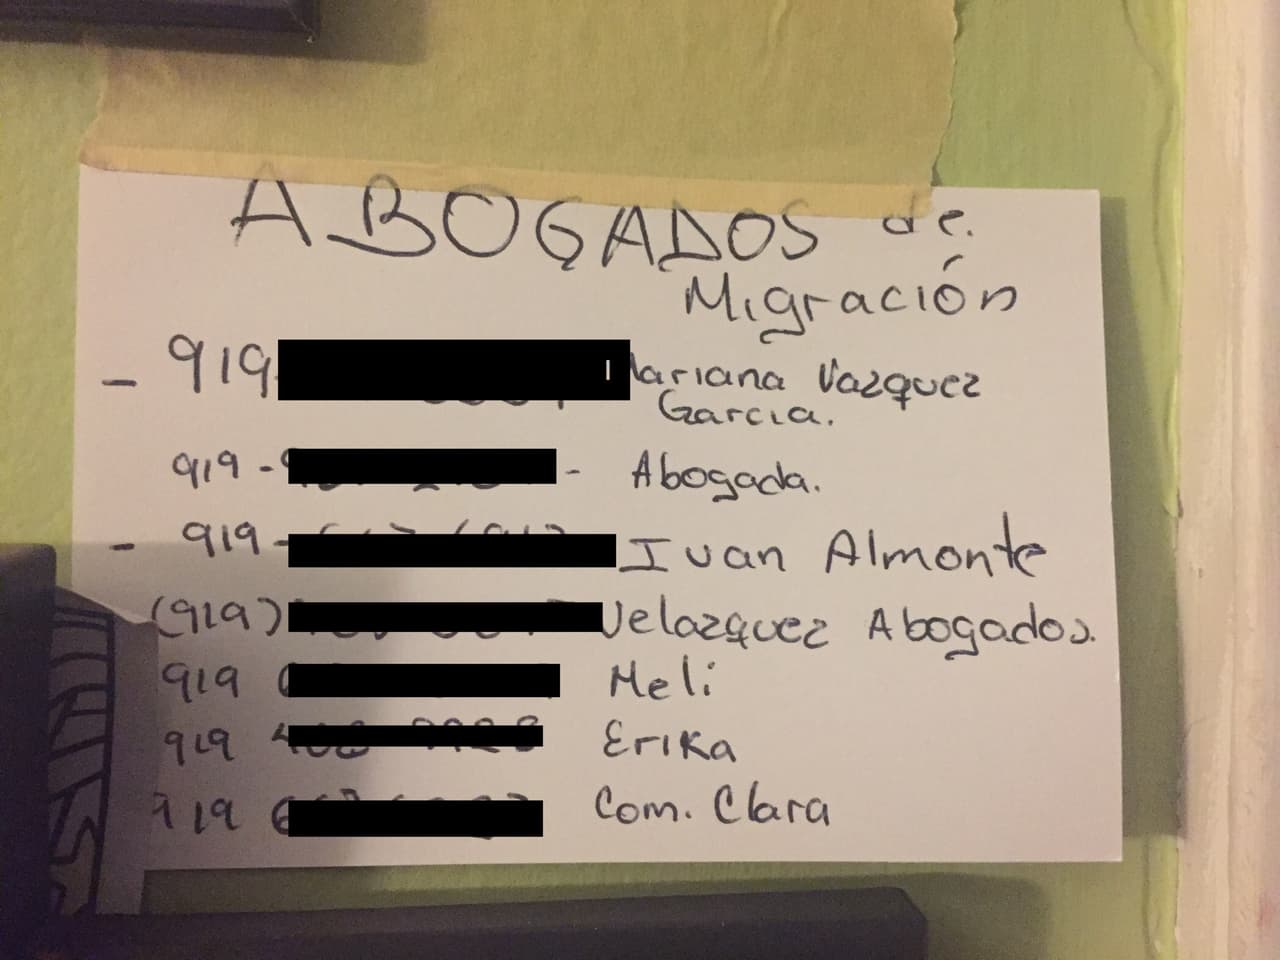 ABOGADOS de.
Migración
- 919 Mariana Vazquez
Garcia.
919 - - Abogada.
- 919- Ivan Almonte
(919) Velazquez Abogados.
919 Meli
919 Erika
919 Com. Clara